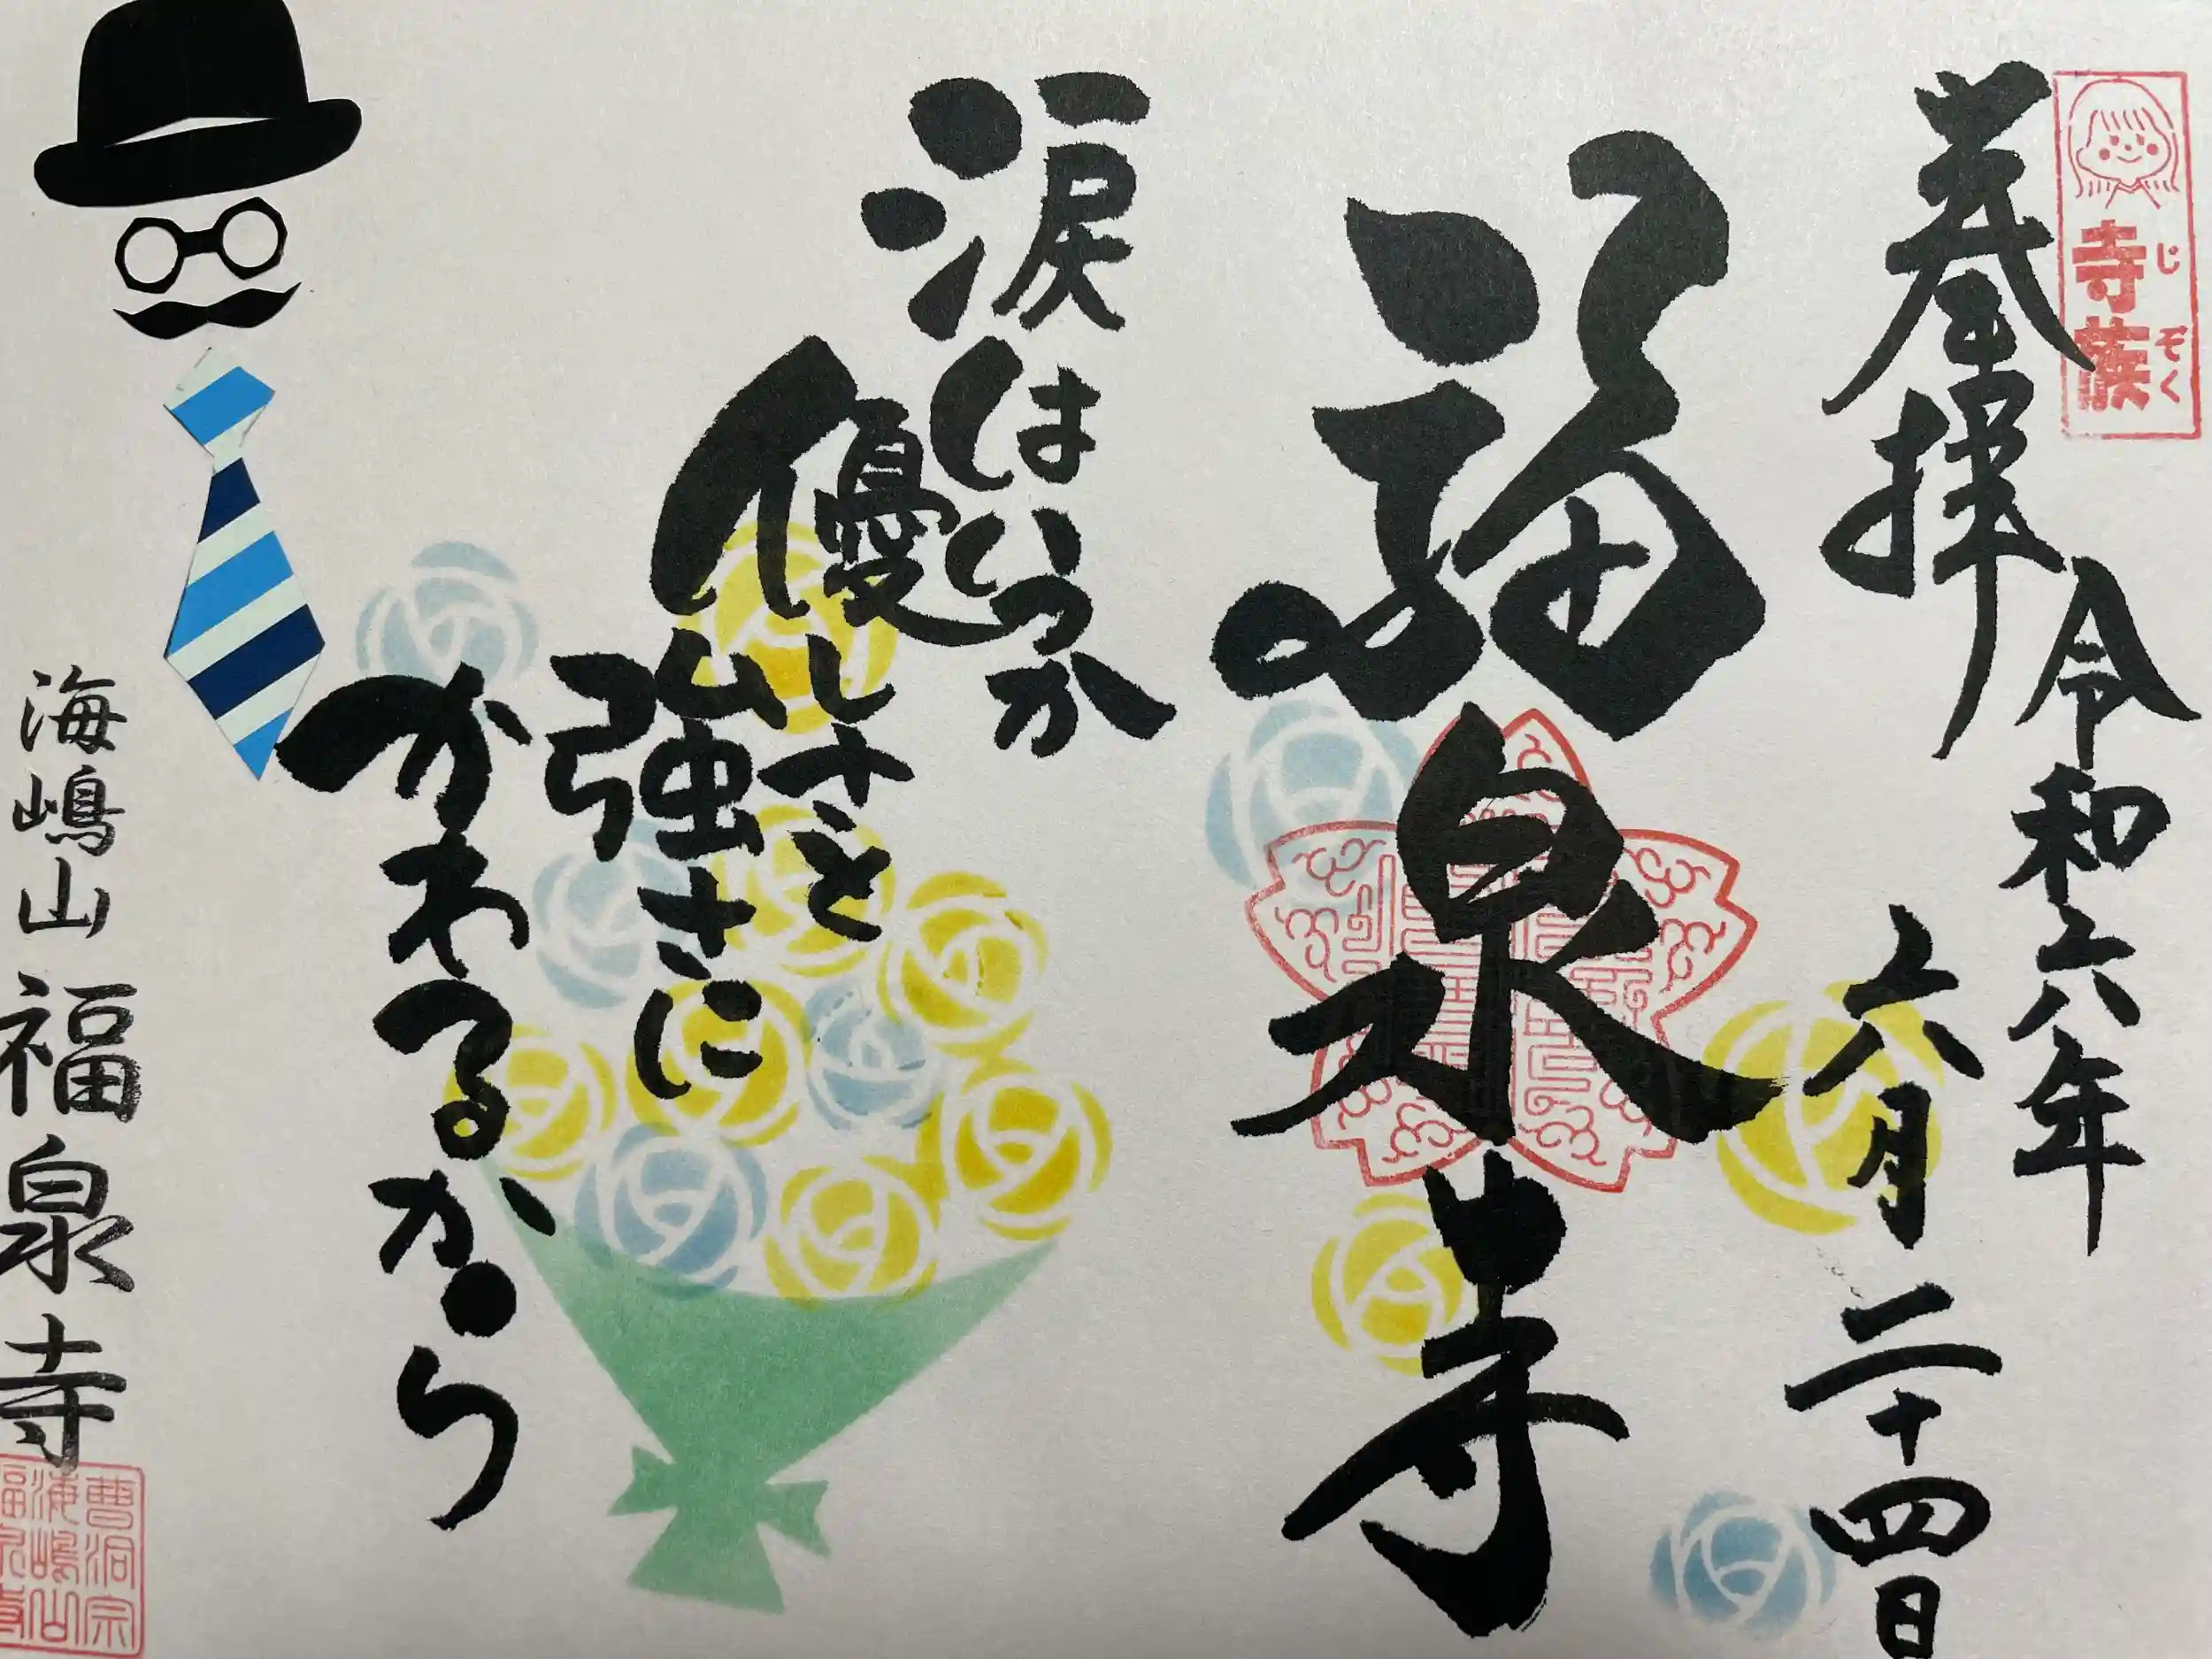 じぞく
寺族
奉拝
令和六年
六月二十四日
福泉寺
涙はいつか
優しさと
強さに
かわるから
海嶋山福泉寺
曹洞宗
海嶋山
福泉寺